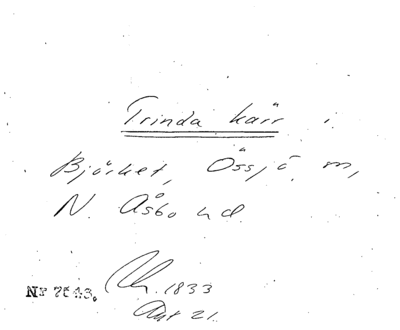 Trinda kärr i
Björket, Össjö m,
N. Åsbo hd.
Nr 7643. 1833
21.